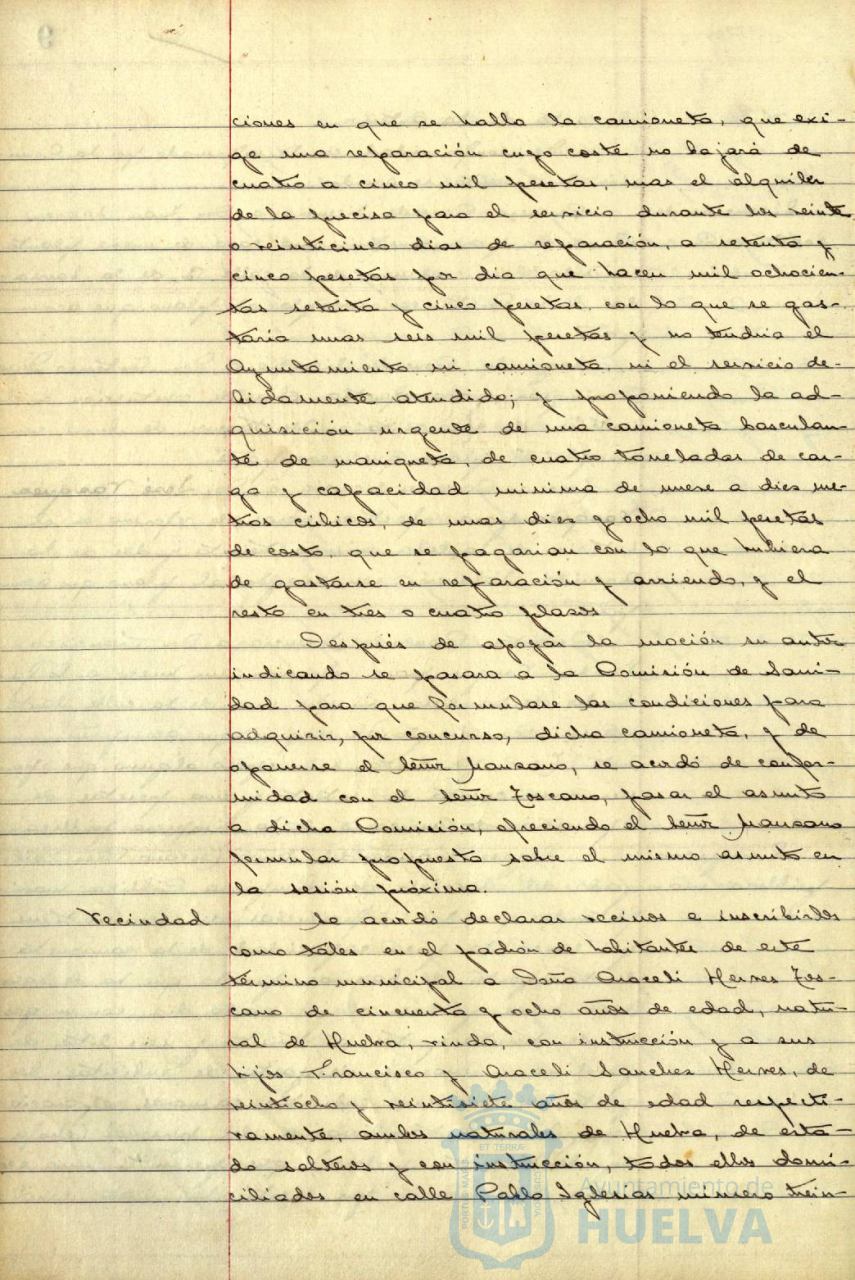 ciones en que se halla la camioneta, que exi-
ge una reparación cuyo coste no bajará de
cuatro a cinco mil pesetas, mas el alquiler
de la precisa para el servicio durante los veinte
o veinticinco dias de reparación, a setenta y
cinco pesetas por dia que hacen mil ochocien-
tas setenta y cinco pesetas, con lo que se gas-
taria unas seis mil pesetas y no tendria el
Ayuntamiento ni camioneta ni el servicio de-
bidamente atendido; y proponiendo la ad-
quisición urgente de una camioneta basculan-
te de manigueta, de cuatro toneladas de car-
ga y capacidad minima de nueve a diez me-
tros cúbicos, de unas diez y ocho mil pesetas
de costo, que se pagarian con lo que hubiera
de gastarse en reparación y arriendo, y el
resto en tres o cuatro plazos
Después de apoyar la moción su autor
indicando se pasara a la Comisión de Sani-
dad para que formulase las condiciones para
adquirir, por concurso, dicha camioneta, y de
oponerse el Señor Manzano, se acordó de confor-
midad con el Señor Toscano, pasar el asunto
a dicha Comisión, ofreciendo el Señor Manzano
formular propuesta sobre el mismo asunto en
la sesión próxima.
Vecindad
Se acordó declarar vecinos e inscribirlos
como tales en el padrón de habitantes de este
término municipal a Doña Araceli Herves Tos-
cano de cincuenta y ocho años de edad, natu-
ral de Huelva, viuda, con instrucción y a sus
hijos Francisco y Araceli Sanchez Herves, de
veintiocho y veintisiete años de edad respecti-
vamente, ambos naturales de Huelva, de esta-
do solteros y con instrucción, todos ellos domi-
ciliados en calle Pablo Iglesias número trein-
Ayuntamiento de
HUELVA